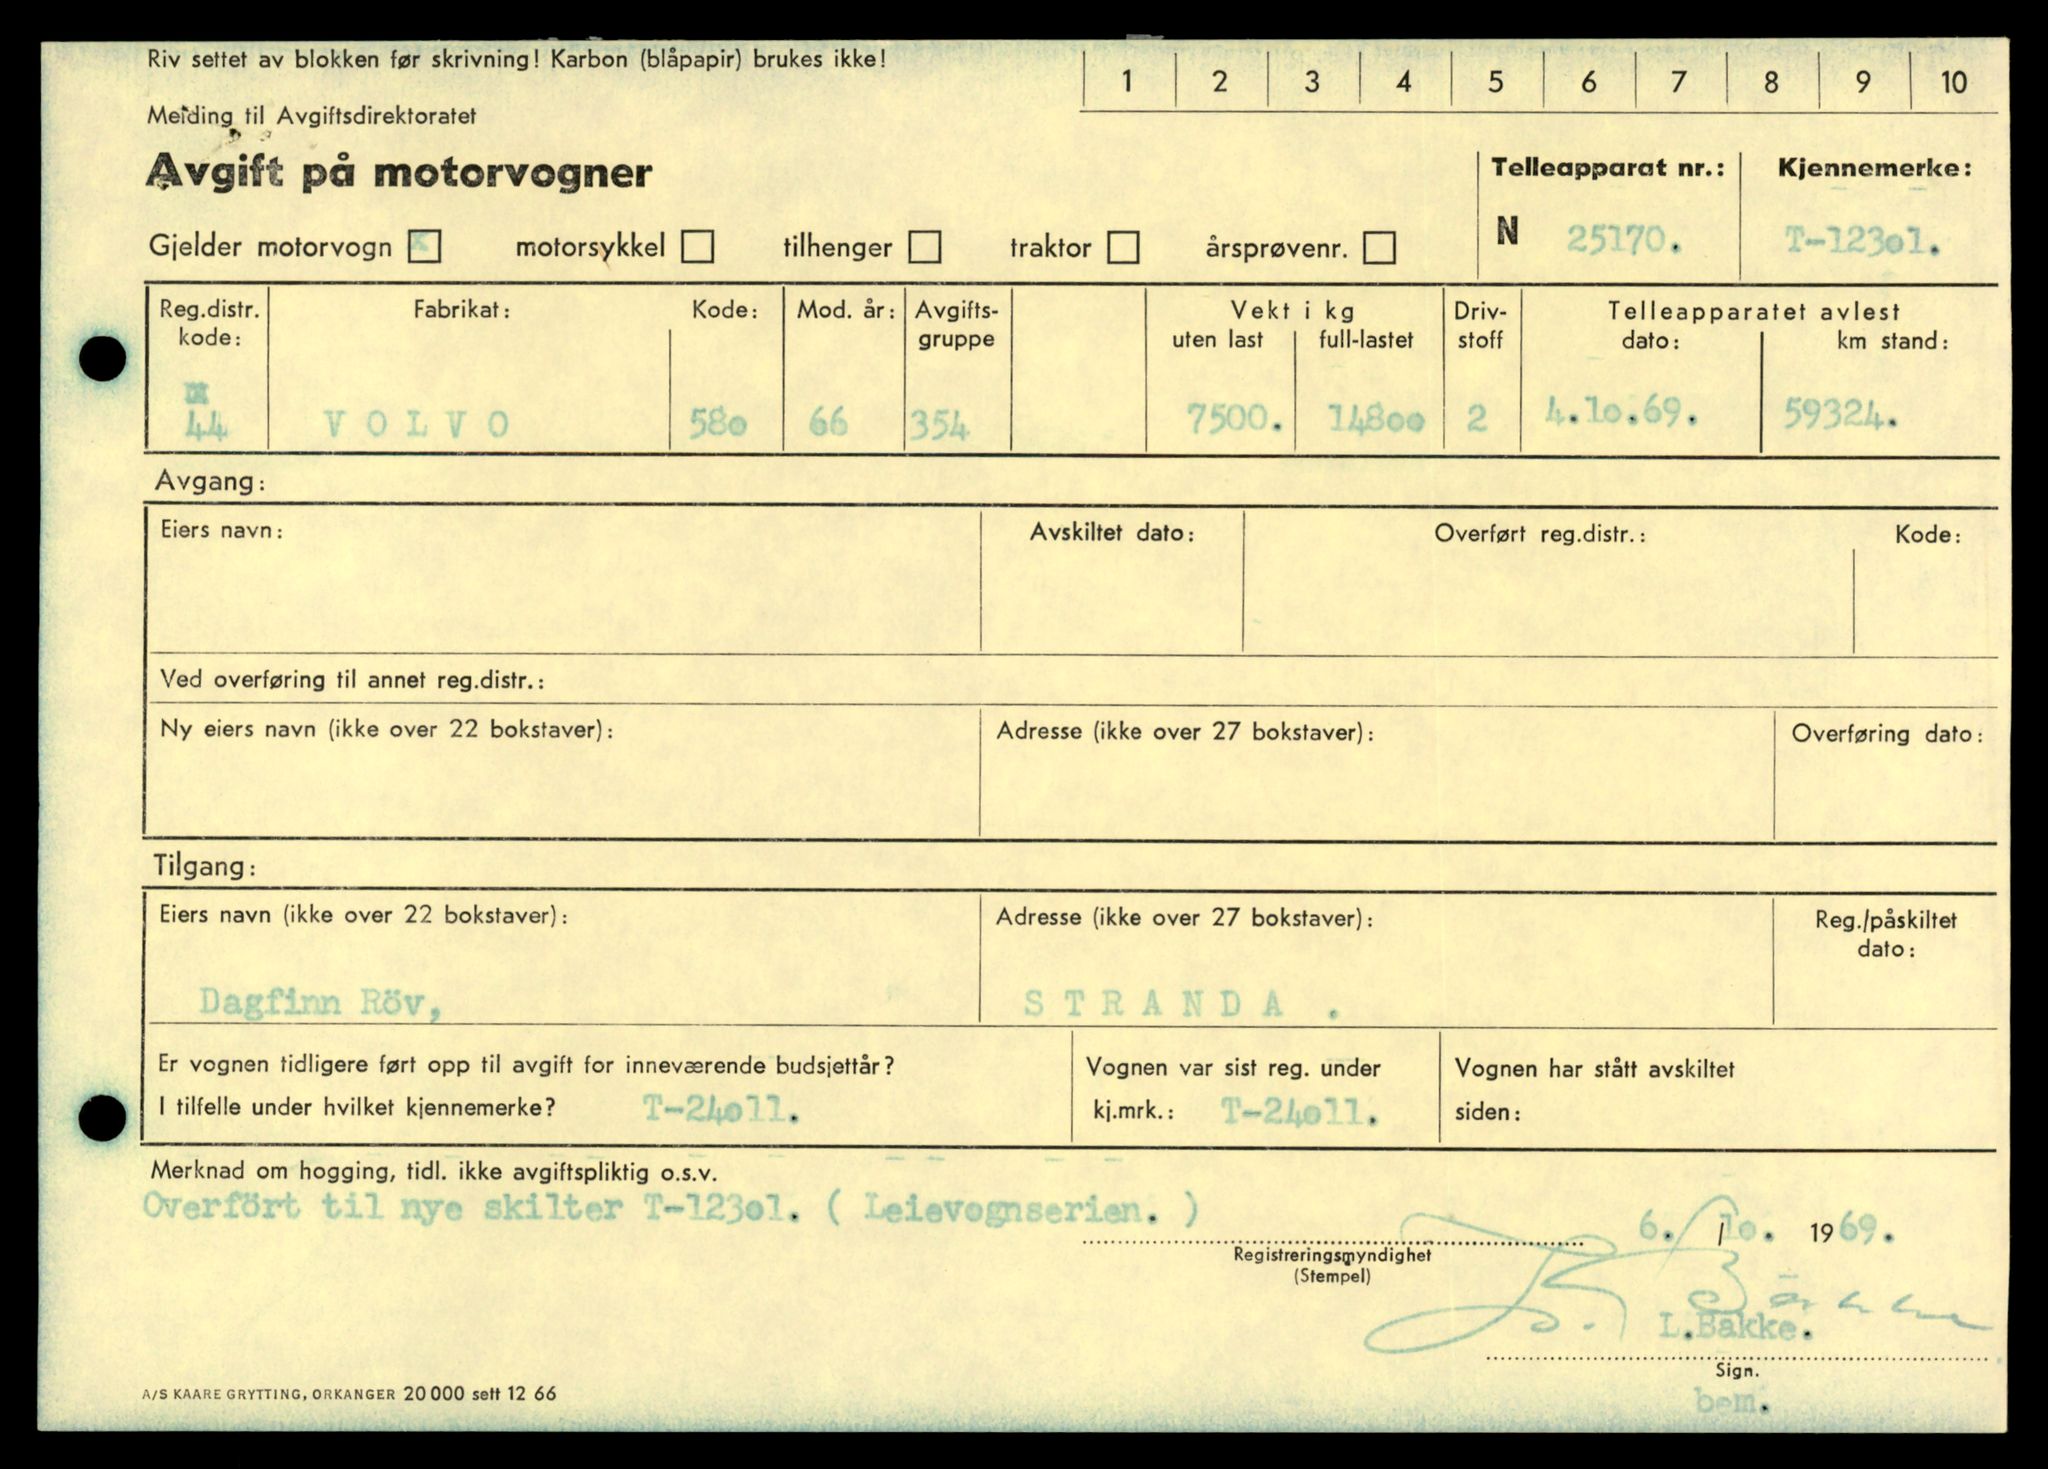 Riv settet av blokken før skrivning! Karbon (blåpapir) brukes ikke!
1 2 3 4 5 6 7 8 9 10
Melding til Avgiftsdirektoratet
Avgift på motorvogner
Telleapparat nr.: Kjennemerke:
N 25170. T-123o1.
Gjelder motorvogn x motorsykkel tilhenger traktor årsprøvenr.
Reg.distr. kode: Fabrikat: Kode: Mod. år: Avgifts-gruppe Vekt i kg Driv-stoff Telleapparatet avlest
uten last full-lastet dato: km stand:
44 V O L V O 58o 66 354 7500. 148oo 2 4.1o.69. 59324.
Avgang:
Eiers navn: Avskiltet dato: Overført reg.distr.: Kode:
Ved overføring til annet reg.distr.:
Ny eiers navn (ikke over 22 bokstaver): Adresse (ikke over 27 bokstaver): Overføring dato:
Tilgang:
Eiers navn (ikke over 22 bokstaver): Adresse (ikke over 27 bokstaver): Reg./påskiltet
dato:
Dagfinn Röv, S T R A N D A .
Er vognen tidligere ført opp til avgift for inneværende budsjettår? Vognen var sist reg. under Vognen har stått avskiltet
I tilfelle under hvilket kjennemerke? T-24o11. kj.mrk.: T-24o11. siden:
Merknad om hogging, tidl. ikke avgiftspliktig o.s.v.
Overfört til nye skilter T-123o1. ( Leievognserien. )
6. / 1o. 1969.
Registreringsmyndighet
(Stempel)
L. Bakke
L.Bakke.
Sign.
bem.
A/S KAARE GRYTTING, ORKANGER 20 000 sett 12 66